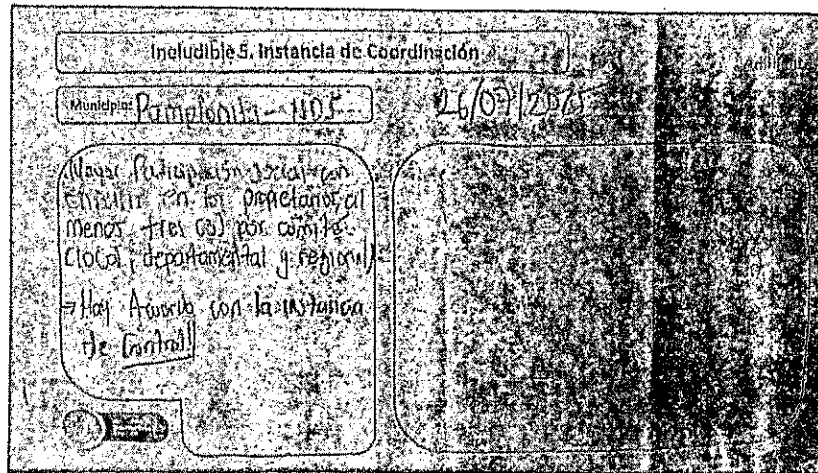 Ineludible 5. Instancia de Coordinación
Municipio: Pamplonita - NDS
26/07/2025
Mayor Participación social con
énfasis en los propietarios, al
menos tres (3) por comité
(local, departamental y regional)
→ Hay Acuerdo con la instancia
de Control!